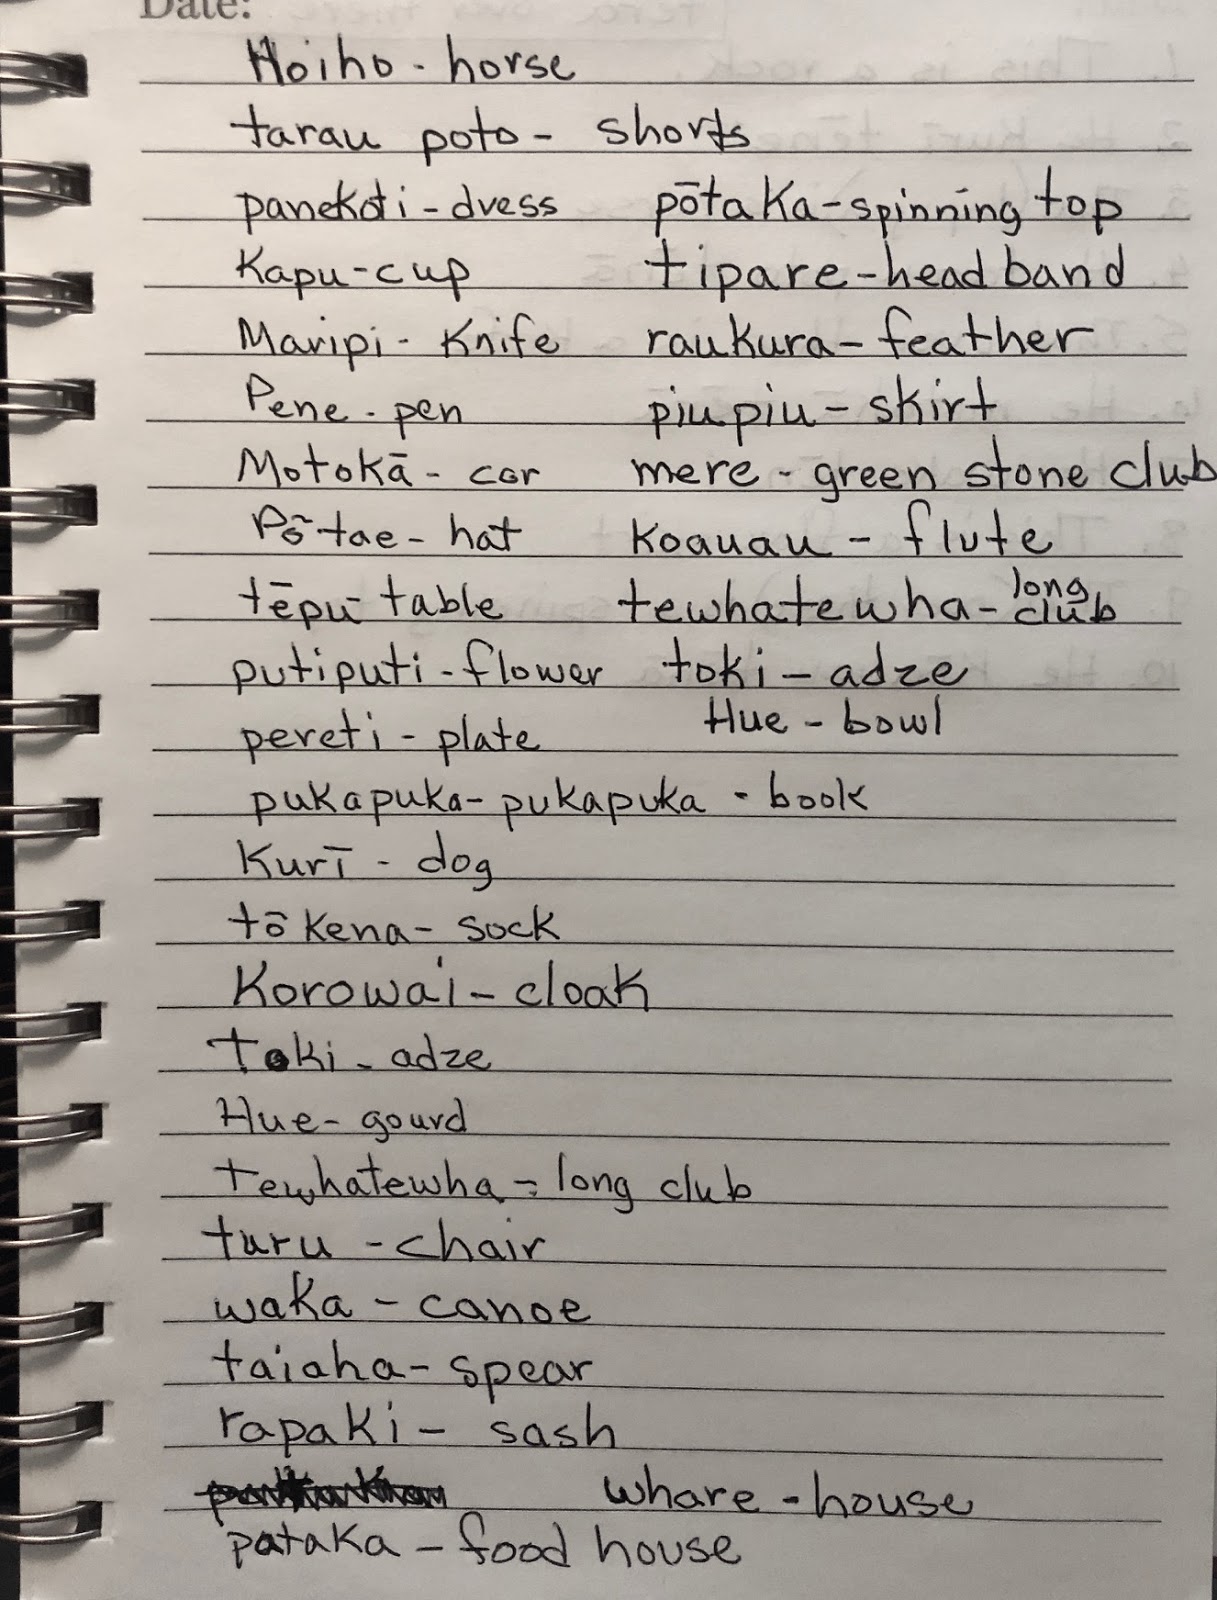 Date:
Hoiho - horse
tarau poto - shorts
panekoti - dress
Kapu - cup
Maripi - Knife
Pene - pen
Motokā - car
Pōtae - hat
tēpu - table
putiputi - flower
pereti - plate
pukapuka - pukapuka - book
Kurī - dog
tōkena - sock
Korowai - cloak
Toki - adze
Hue - gourd
Tewhatewha - long club
turu - chair
waka - canoe
taiaha - spear
rapaki - sash
pataka - food house
pōtaka - spinning top
tipare - head band
raukura - feather
piupiu - skirt
mere - green stone club
Koauau - flute
tewhatewha - long club
toki - adze
Hue - bowl
whare - house